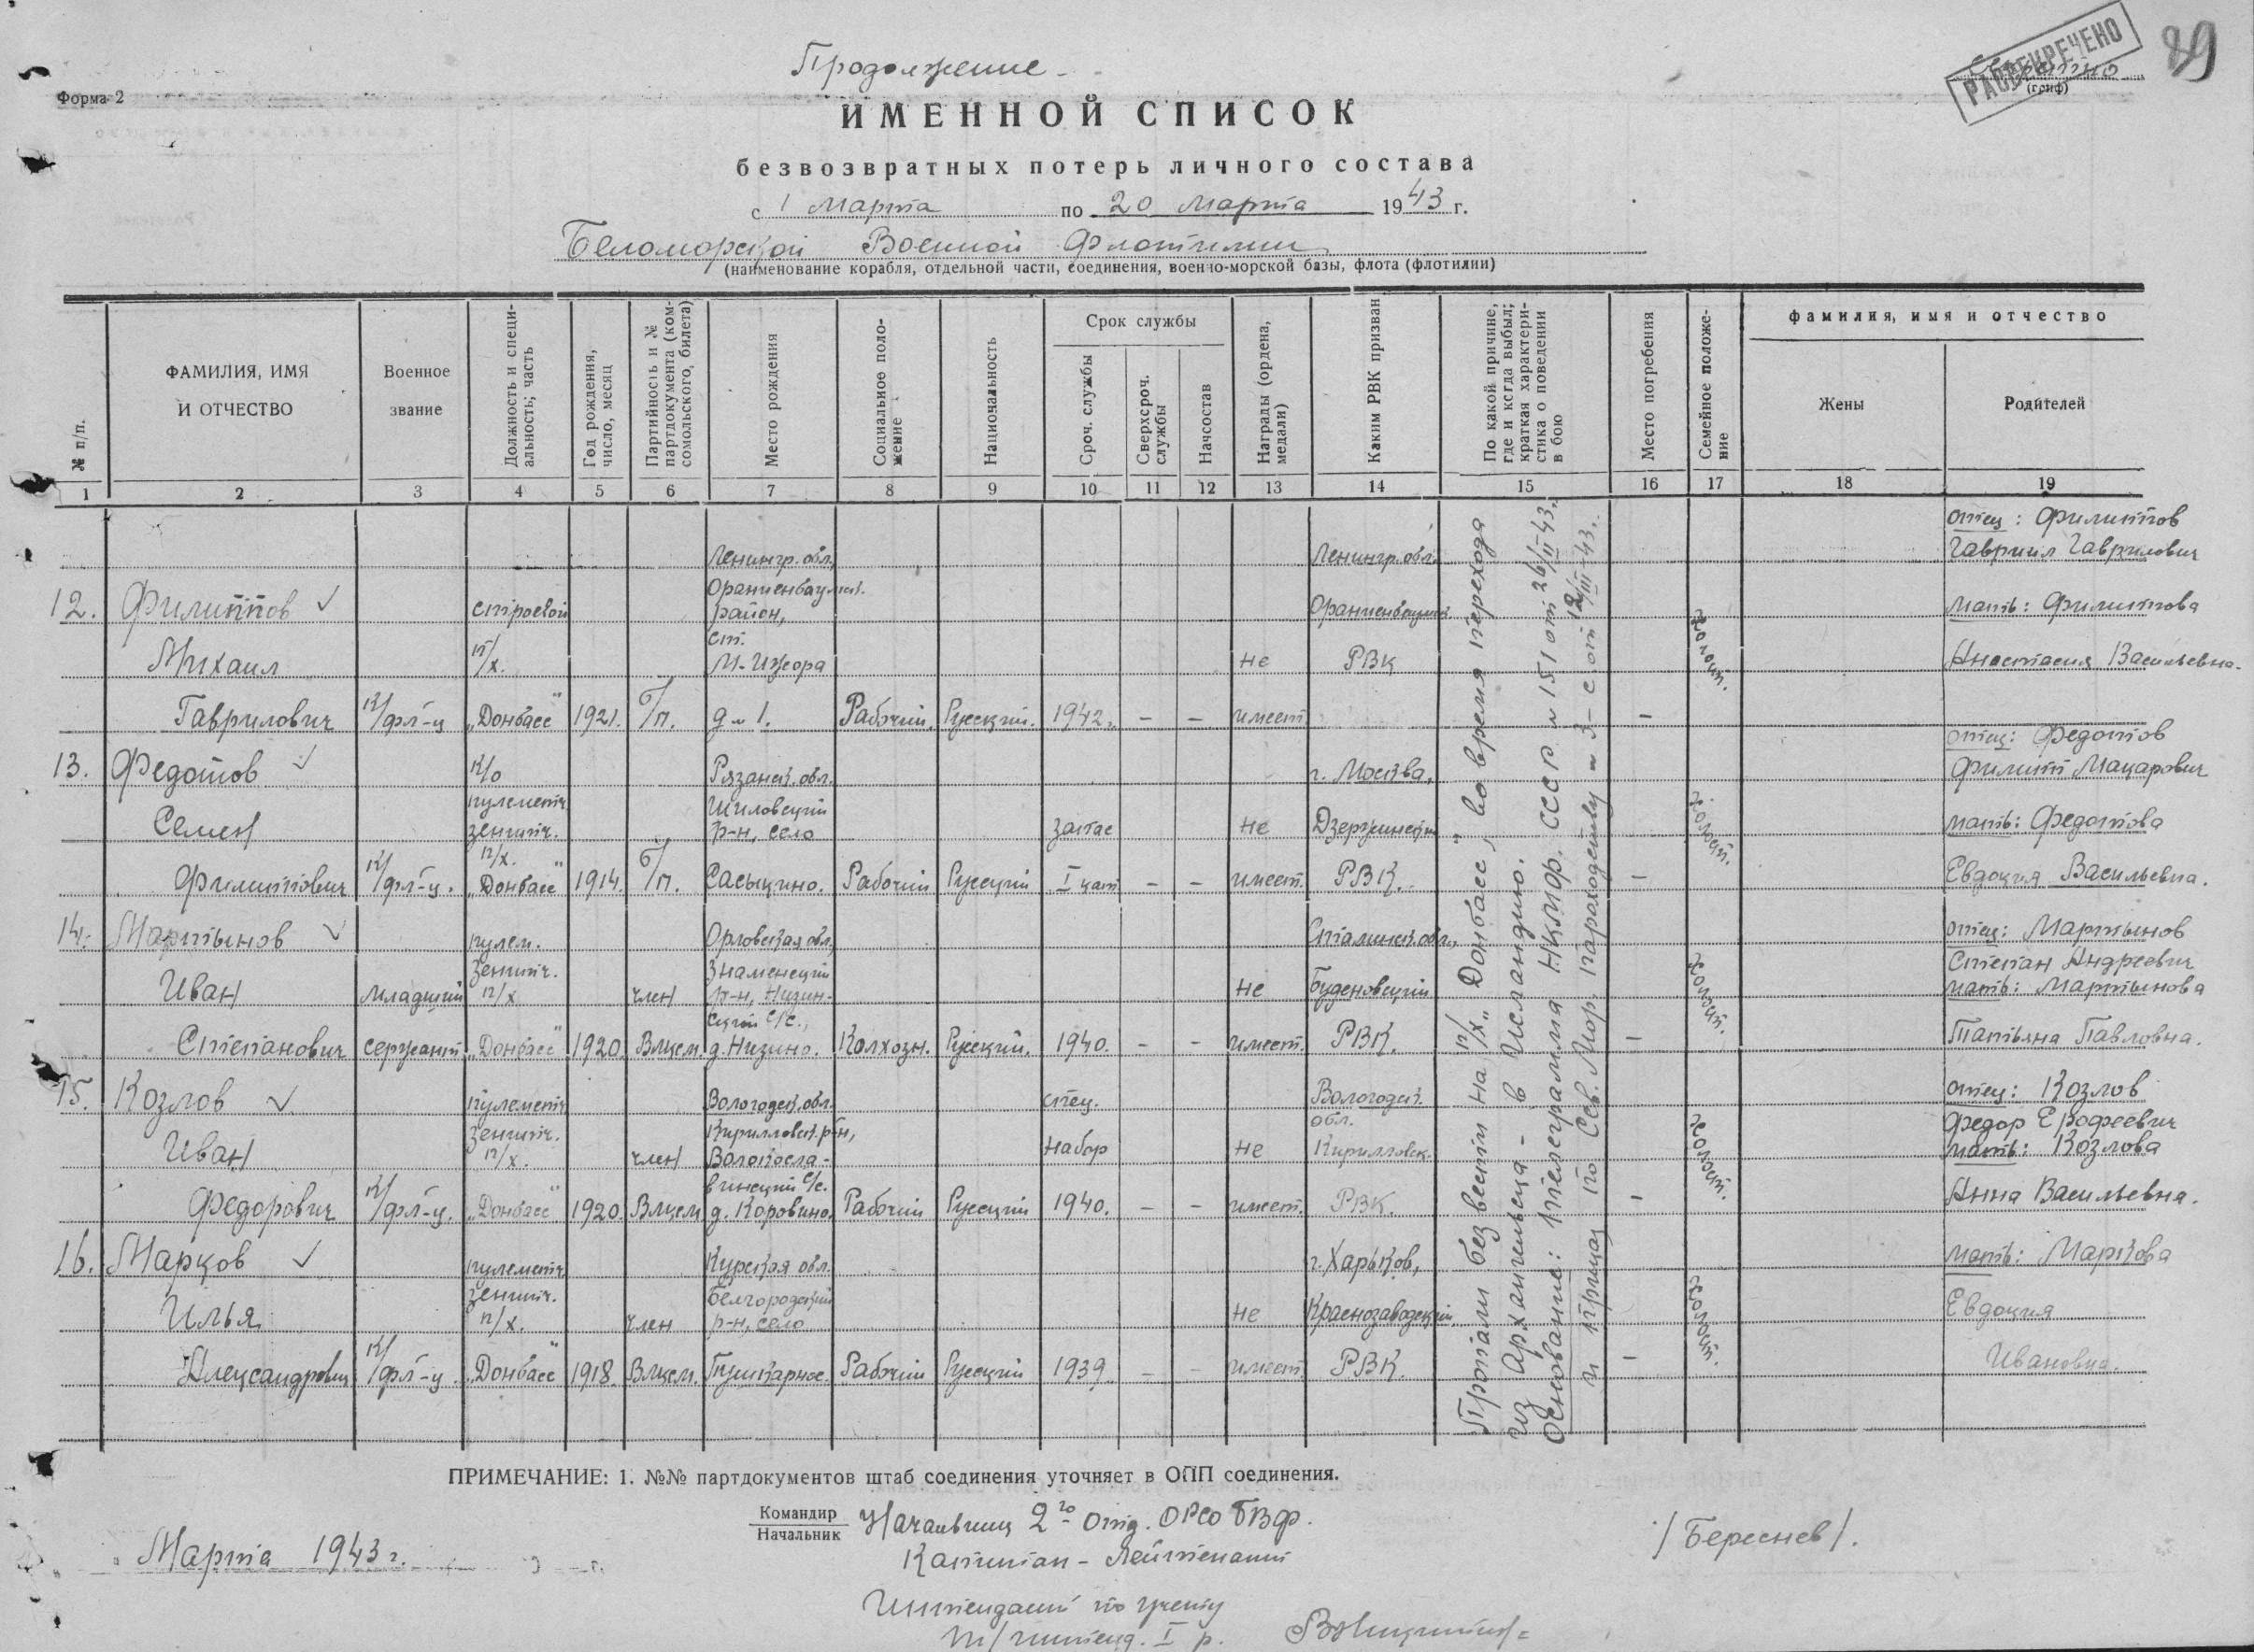 Продолжение
РАССЕКРЕЧЕНО
89
Форма 2
(гриф)
ИМЕННОЙ СПИСОК
безвозвратных потерь личного состава
с 1 Марта по 20 Марта 1943 г.
Беломорской Военной Флотилии
(наименование корабля, отдельной части, соединения, военно-морской базы, флота (флотилии)
№ п/п.
ФАМИЛИЯ, ИМЯ
И ОТЧЕСТВО
Военное
звание
Должность и специ-
альность; часть
Год рождения,
число, месяц
Партийность и №
партдокумента (ком-
сомольского, билета)
Место рождения
Социальное поло-
жение
Национальность
Срок службы
Сроч. службы
Сверхсроч.
службы
Начсостав
Награды (ордена,
медали)
Каким РВК призван
По какой причине,
где и когда выбыл;
краткая характери-
стика о поведении
в бою
Место погребения
Семейное положе-
ние
фамилия, имя и отчество
Жены
Родителей
1 2 3 4 5 6 7 8 9 10 11 12 13 14 15 16 17 18 19
12. Филиппов
Михаил
Гаврилович
к/фл-ц
строевой
п/х.
„Донбасс“
1921.
б/п.
Ленингр. обл.
Ораниенбаумск.
район,
ст.
М-Ижора
д ~ 1.
Рабочий.
Русский.
1942 г.
– –
не
имеет.
Ленингр. обл.
Ораниенбаумск.
РВК
–
Холост.
отец: Филиппов
Гавриил Гаврилович
мать: Филиппова
Анастасия Васильевна.
13. Федотов
Семен
Филиппович
к/фл-ц.
к/о
пулеметч.
зенитч.
п/х.
„Донбасс“
1914.
б/п.
Рязанск. обл.
Шиловский
р-н, село
Сасыкино.
Рабочий
Русский
запас
I кат
– –
не
имеет.
г. Москва,
Дзержинский
РВК.
–
Холост.
отец: Федотов
Филипп Макарович
мать: Федотова
Евдокия Васильевна.
14. Мартынов
Иван
Степанович
младший
сержант
пулем.
зенитч.
п/х
„Донбасс“
1920.
член
Влксм
Орловская обл.,
Знаменский
р-н, Низин-
ский с/с.,
д. Низино.
Колхозн.
Русский.
1940.
– –
не
имеет.
Сталинск. обл.,
Буденовский
РВК.
–
Холост.
отец: Мартынов
Степан Андреевич
мать: Мартынова
Татьяна Павловна.
15. Козлов
Иван
Федорович
к/фл-ц.
пулеметч
зенитч.
п/х.
„Донбасс“
1920.
член
Влксм
Вологодск. обл.
Кирилловск. р-н,
Волокосла-
винский с/с.
д. Коровино.
Рабочий
Русский
спец.
набор
1940.
– –
не
имеет.
Вологодск.
обл.
Кирилловск.
РВК.
–
Холост.
отец: Козлов
Федор Ерофеевич
мать: Козлова
Анна Васильевна.
16. Марков
Илья
Александрович
к/фл-ц.
пулеметч
зенитч.
п/х.
„Донбасс“
1918.
член
Влксм.
Курская обл.
Белгородский
р-н, село
Пушкарное.
Рабочий
Русский
1939.
– –
не
имеет.
г. Харьков,
Краснозаводский
РВК.
–
Холост.
мать: Маркова
Евдокия
Ивановна.
Пропали без вести на п/х „Донбасс“, во время перехода
из Архангельска - в Исландию.
Основание: телеграмма НКМор. СССР ~ 151 от 26/II-43 г.
и приказ по Сев. Мор. пароходству ~ 3-с от 12/III-43 г.
ПРИМЕЧАНИЕ: 1. №№ партдокументов штаб соединения уточняет в ОПП соединения.
Командир
Начальник
Начальник 2го отд. ОРСО БВФ.
Капитан-Лейтенант
/Береснев/.
„ Марта 1943 г.
Интендант по учету
т/интенд. I р.